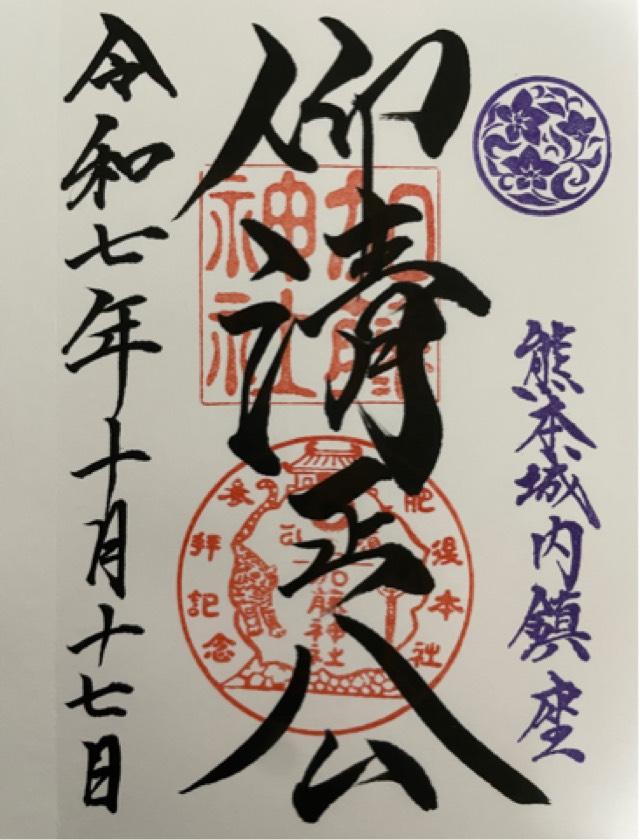 熊本城内鎮座
仰清正公
加藤
神社
肥後本社
加藤神社
参拝記念
令和七年十月十七日